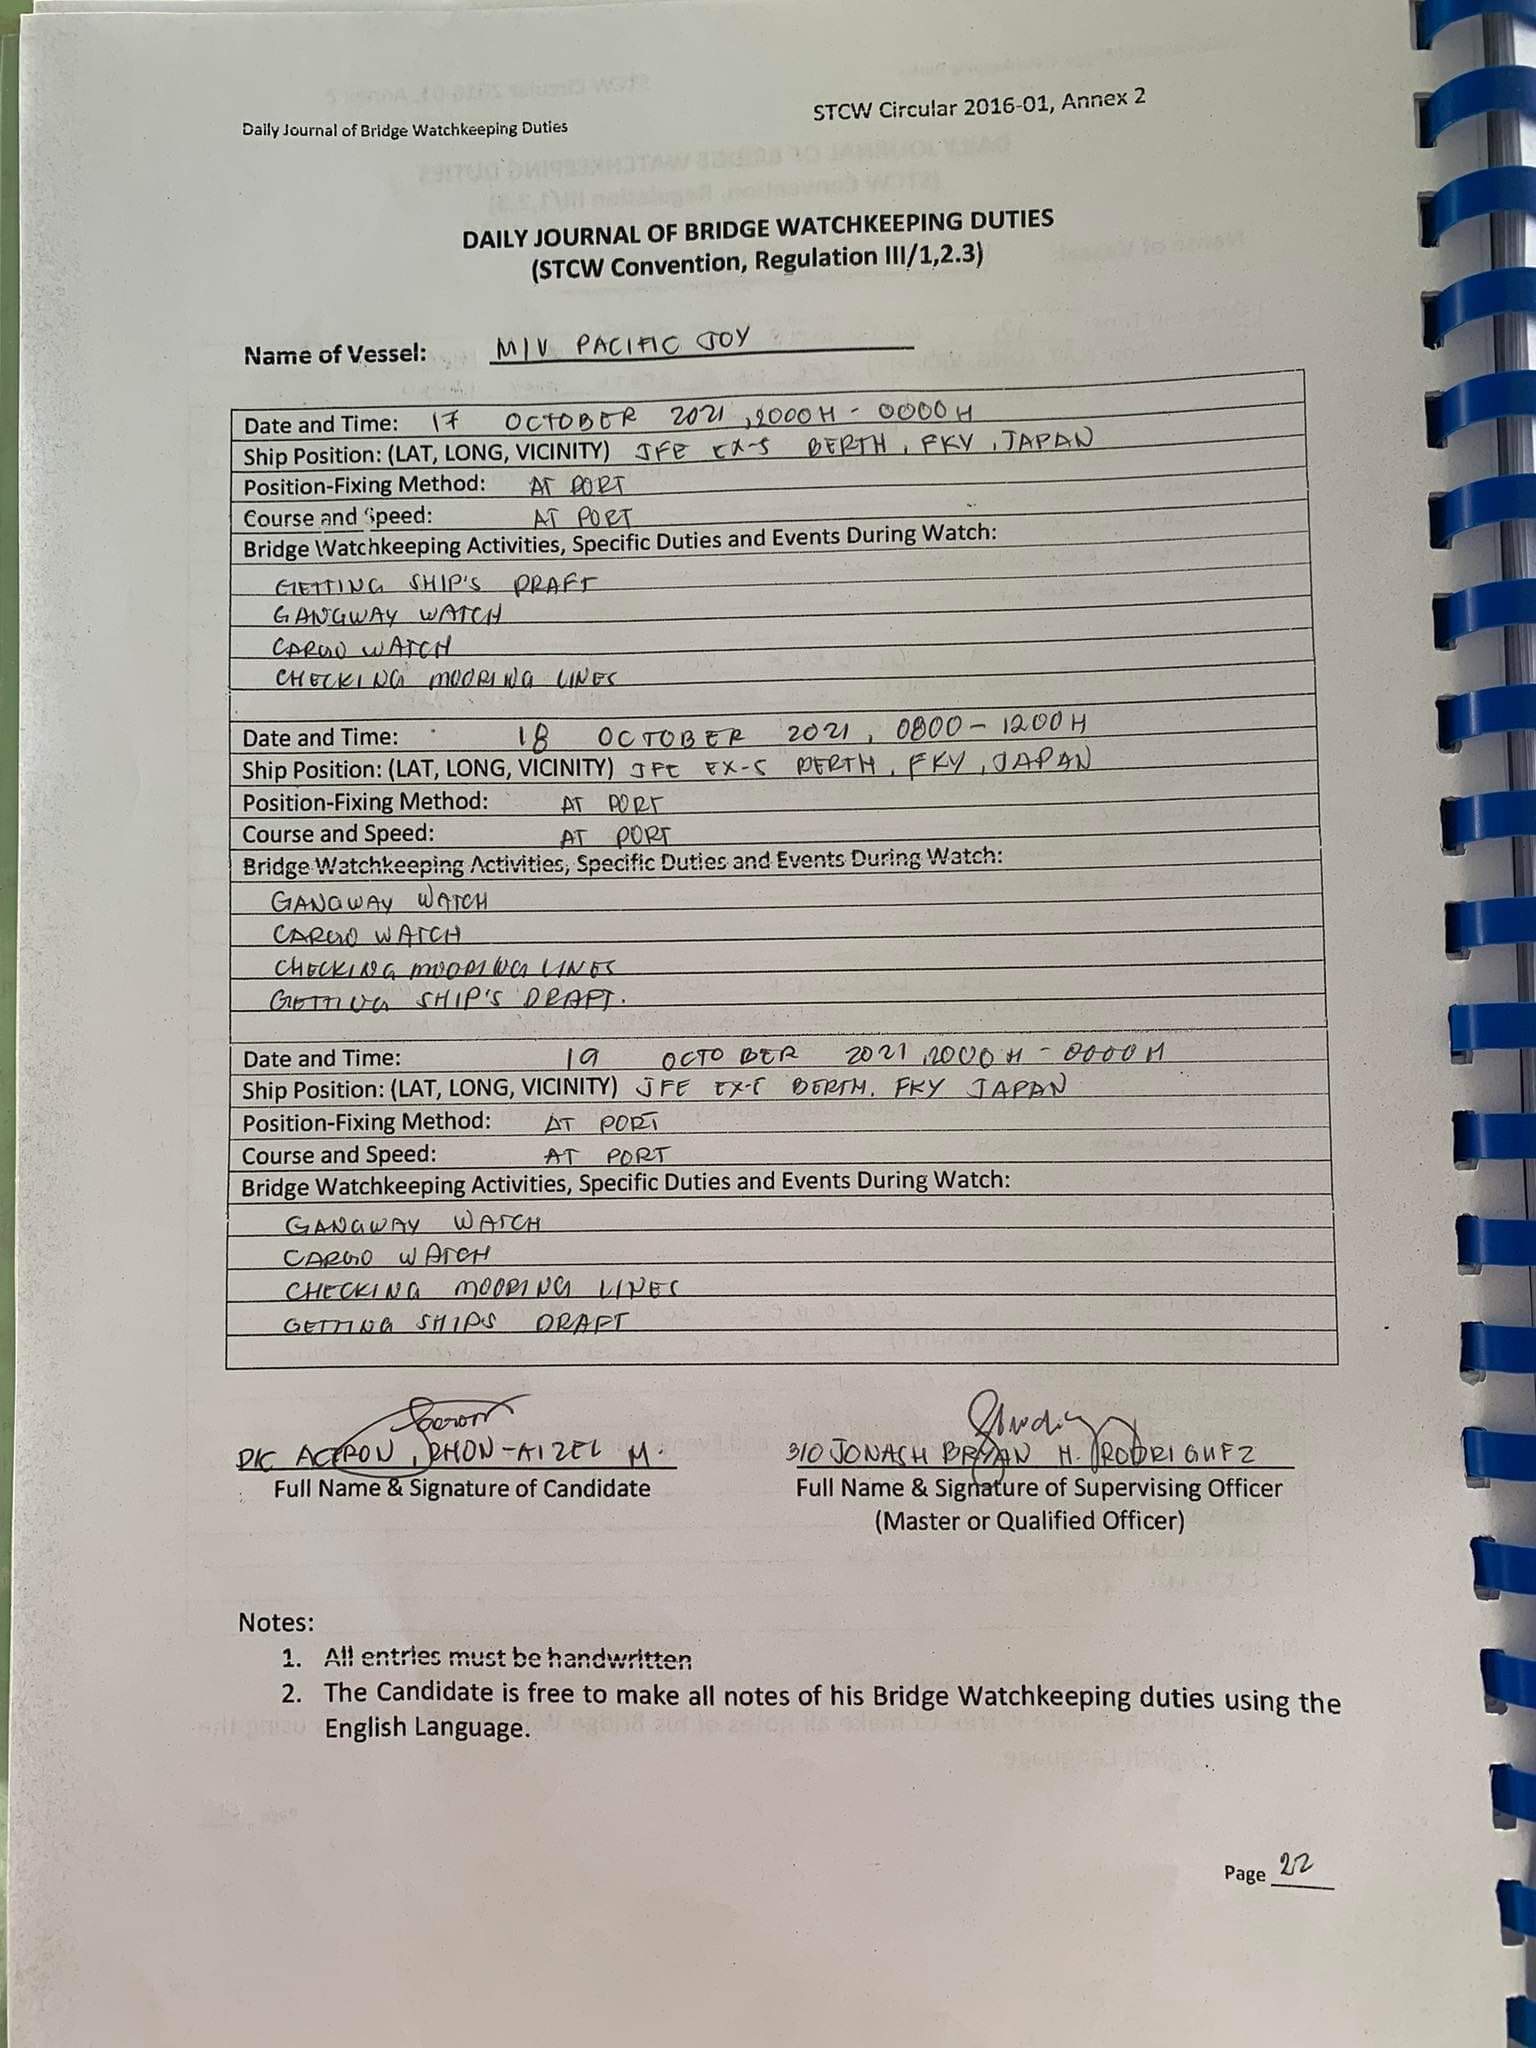 Daily Journal of Bridge Watchkeeping Duties
STCW Circular 2016-01, Annex 2
DAILY JOURNAL OF BRIDGE WATCHKEEPING DUTIES
(STCW Convention, Regulation III/1,2.3)
Name of Vessel: M/V PACIFIC JOY
Date and Time: 17 OCTOBER 2021, 2000H - 0000H
Ship Position: (LAT, LONG, VICINITY) JFE EX-5 BERTH, FKY, JAPAN
Position-Fixing Method: AT PORT
Course and Speed: AT PORT
Bridge Watchkeeping Activities, Specific Duties and Events During Watch:
GETTING SHIP'S DRAFT
GANGWAY WATCH
CARGO WATCH
CHECKING MOORING LINES
Date and Time: 18 OCTOBER 2021, 0800 - 1200H
Ship Position: (LAT, LONG, VICINITY) JFE EX-5 BERTH, FKY, JAPAN
Position-Fixing Method: AT PORT
Course and Speed: AT PORT
Bridge Watchkeeping Activities, Specific Duties and Events During Watch:
GANGWAY WATCH
CARGO WATCH
CHECKING MOORING LINES
GETTING SHIP'S DRAFT.
Date and Time: 19 OCTOBER 2021, 2000H - 0000H
Ship Position: (LAT, LONG, VICINITY) JFE EX-5 BERTH, FKY JAPAN
Position-Fixing Method: AT PORT
Course and Speed: AT PORT
Bridge Watchkeeping Activities, Specific Duties and Events During Watch:
GANGWAY WATCH
CARGO WATCH
CHECKING MOORING LINES
GETTING SHIPS DRAFT
D/C ACERON, RHON-AIZEL M.
Full Name & Signature of Candidate
3/O JONASH BRYAN H. RODRIGUEZ
Full Name & Signature of Supervising Officer
(Master or Qualified Officer)
Notes:
1. All entries must be handwritten
2. The Candidate is free to make all notes of his Bridge Watchkeeping duties using the
English Language.
Page 22